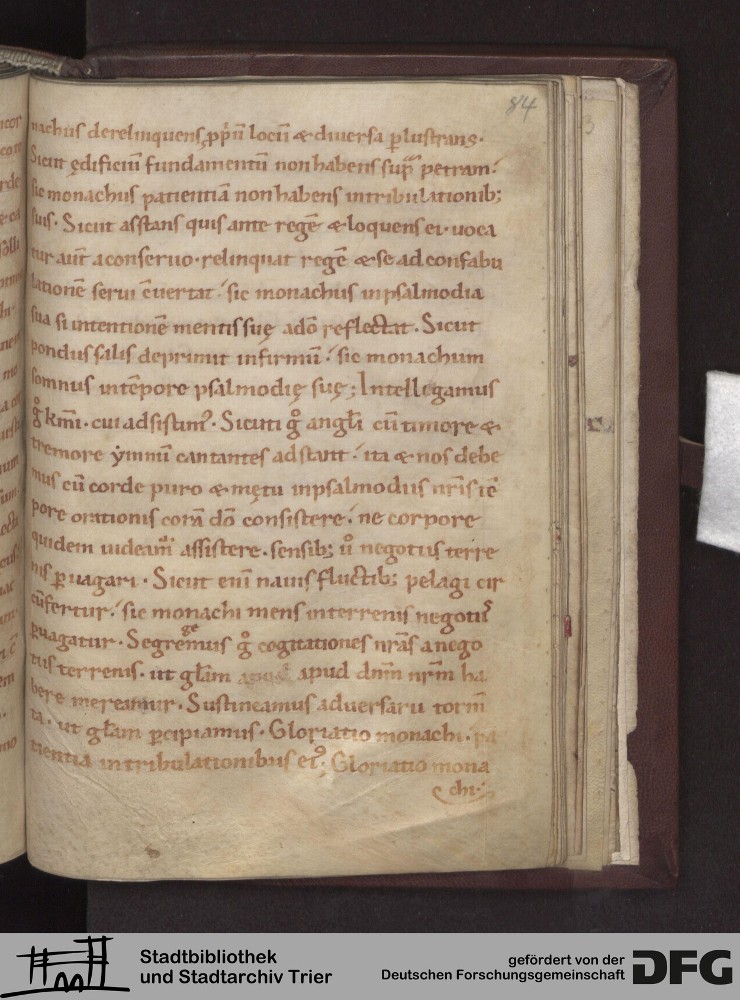 84
nachus derelinquens ꝓpriū locū & diuersa ꝑlustrans.
Sicut ędificiū fundamentū non habens supra petram:
sic monachus patientiā non habens in tribulationib;
suis. Sicut asstans quis ante regē & loquens ei. uoca
tur aūt a conseruo. relinquat regē & se ad confabu
lationē serui c̄uertat: sic monachus in psalmodia
sua si intentionē mentis suę adō reflectat. Sicut
pondus salis deprimit infirmū: sic monachum
somnus in tēpore psalmodię suę; Intelligamus
g̊ kr̄mi. cui adsistim᾽. Sicuti g̊ angl̄i cū timore &
tremore ẏmnū cantantes adstant: ita & nos debe
mus cū corde puro & mętu in psalmodiis nr̄is tē
pore orationis corā dō consistere: ne corpore
quidem uideamur assistere. sensib; ů negotiis terre
nis ꝑuagari. Sicut enī nauis fluctib; pelagi cir
cūfertur: sic monachi mens in terrenis negotiis
ꝑuagatur. Segregemus g̊ cogitationes nr̄as a nego
tiis terrenis. ut gl̄am apud dnm̄ nr̄m ha
bere mereamur. Sustineamus aduersarii torm̄
ta. ut gl̄am ꝑcipiamus. Gloriatio monachi. pa
tientia in tribulationibus ei᾽; Gloriatio mona
chi.
Stadtbibliothek
und Stadtarchiv Trier
gefördert von der
Deutschen Forschungsgemeinschaft
DFG